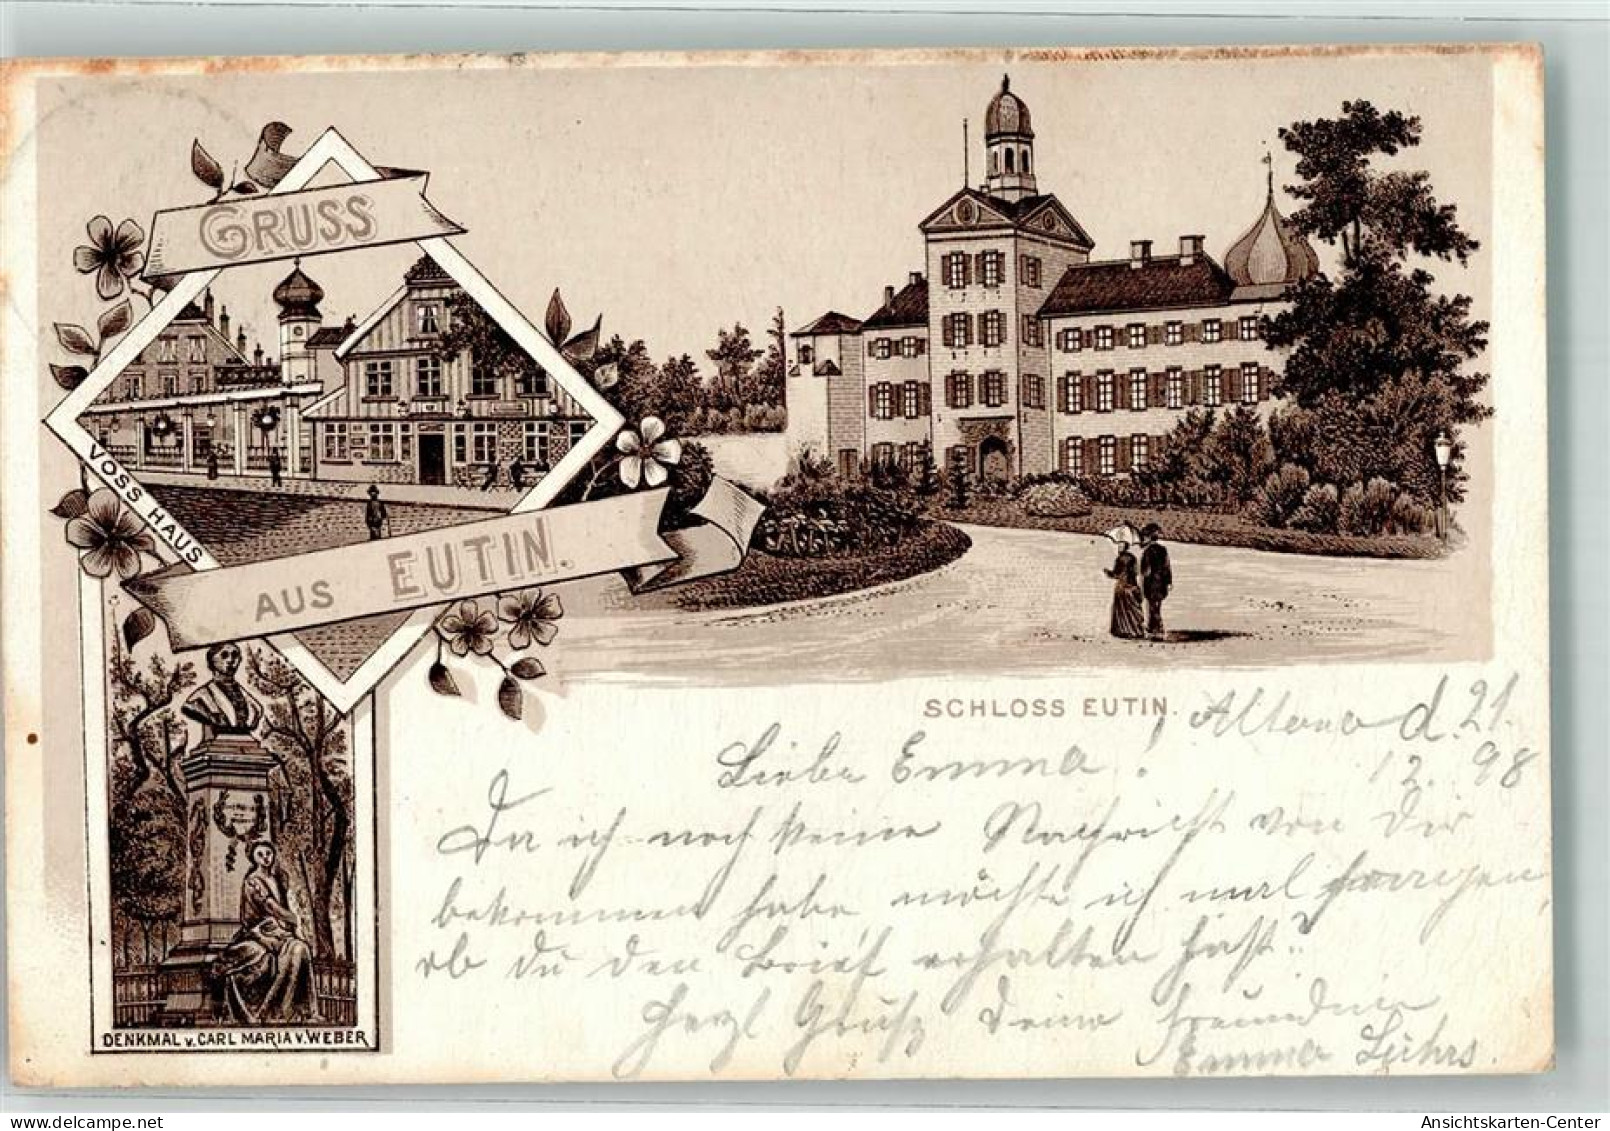 GRUSS
AUS EUTIN.
VOSS HAUS
DENKMAL v. CARL MARIA v. WEBER
SCHLOSS EUTIN.
Altona d. 21.
12. 98
Liebe Emma!
Da ich noch keine Nachricht von Dir
bekommen habe, möchte ich mal fragen,
ob du den Brief erhalten hast?
Herzl Gruß Deine Freundin
Emma Lührs.
Ansichtskarten-Center